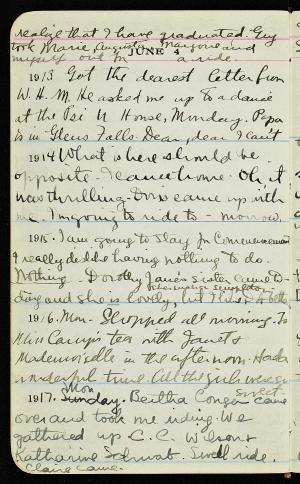 realize that I have graduated. Guy
took Marie, Augusta, Marjorie and
myself out in a ride.
JUNE 4
1913 Got the dearest letter from
W. H. M. He asked me up to a dance
at the Psi U House, Monday. Papa
is in Glens Falls. Dear, dear I can't
1914 What is here should be
opposite. I came home. Oh it
was thrilling. Dris came up with
me. I'm going to ride to-morrow.
1915. I am going to stay for Commencement
I really decided having nothing to do.
Nothing. Dorothy Jane's sister came to-
day and she is lovely, but I like
1916. Mon- Shopped all morning. To
Miss Carey's tea with Janet's
Mademoiselle in the afternoon. Had a
wonderful time. All the girls were so
sweet.
Mon
1917. Sunday. Bertha Conger came
over and took me riding. We
gathered up C. C. Wilson &
Katharine Schwab. Swell ride.
Claire came.